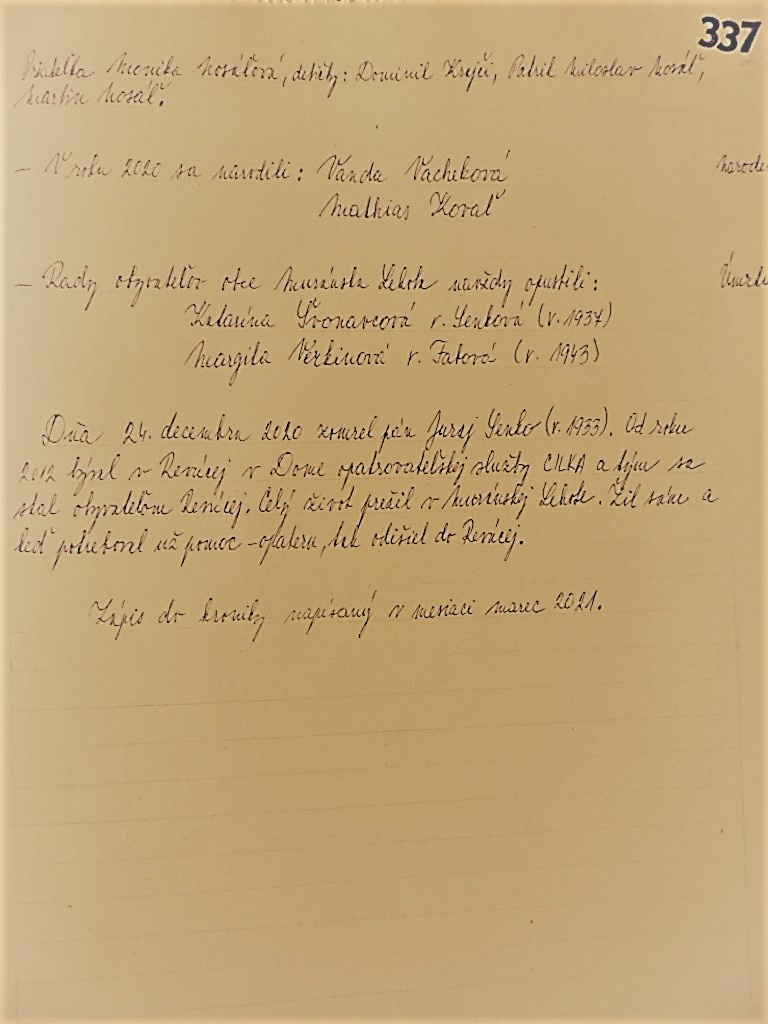 337
Priateľka Monika Nosáľová, detičky: Dominik Krejči, Patrik Miloslav Nosáľ,
Martin Nosáľ.
– V roku 2020 sa narodili: Vanda Vacheková
Mathias Kováč
– Rady obyvateľov obce Muránska Lehota navždy opustili:
Katarína Švonavcová r. Senková (r. 1937)
Margita Verkinová r. Faťová (r. 1943)
Dňa 24. decembra 2020 zomrel pán Juraj Senko (r. 1933). Od roku
2012 býval v Revúcej v Dome opatrovateľskej služby CILKA a tým sa
stal obyvateľom Revúcej. Celý život prežil v Muránskej Lehote. Žil sám a
keď potreboval už pomoc – opateru, tak odišiel do Revúcej.
Zápis do kroniky napísaný v mesiaci marec 2021.